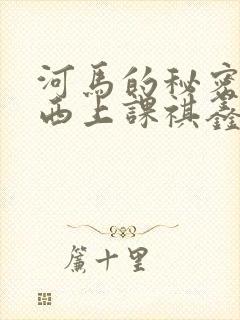 河馬的秘密
西上課祺鑫
簾十里